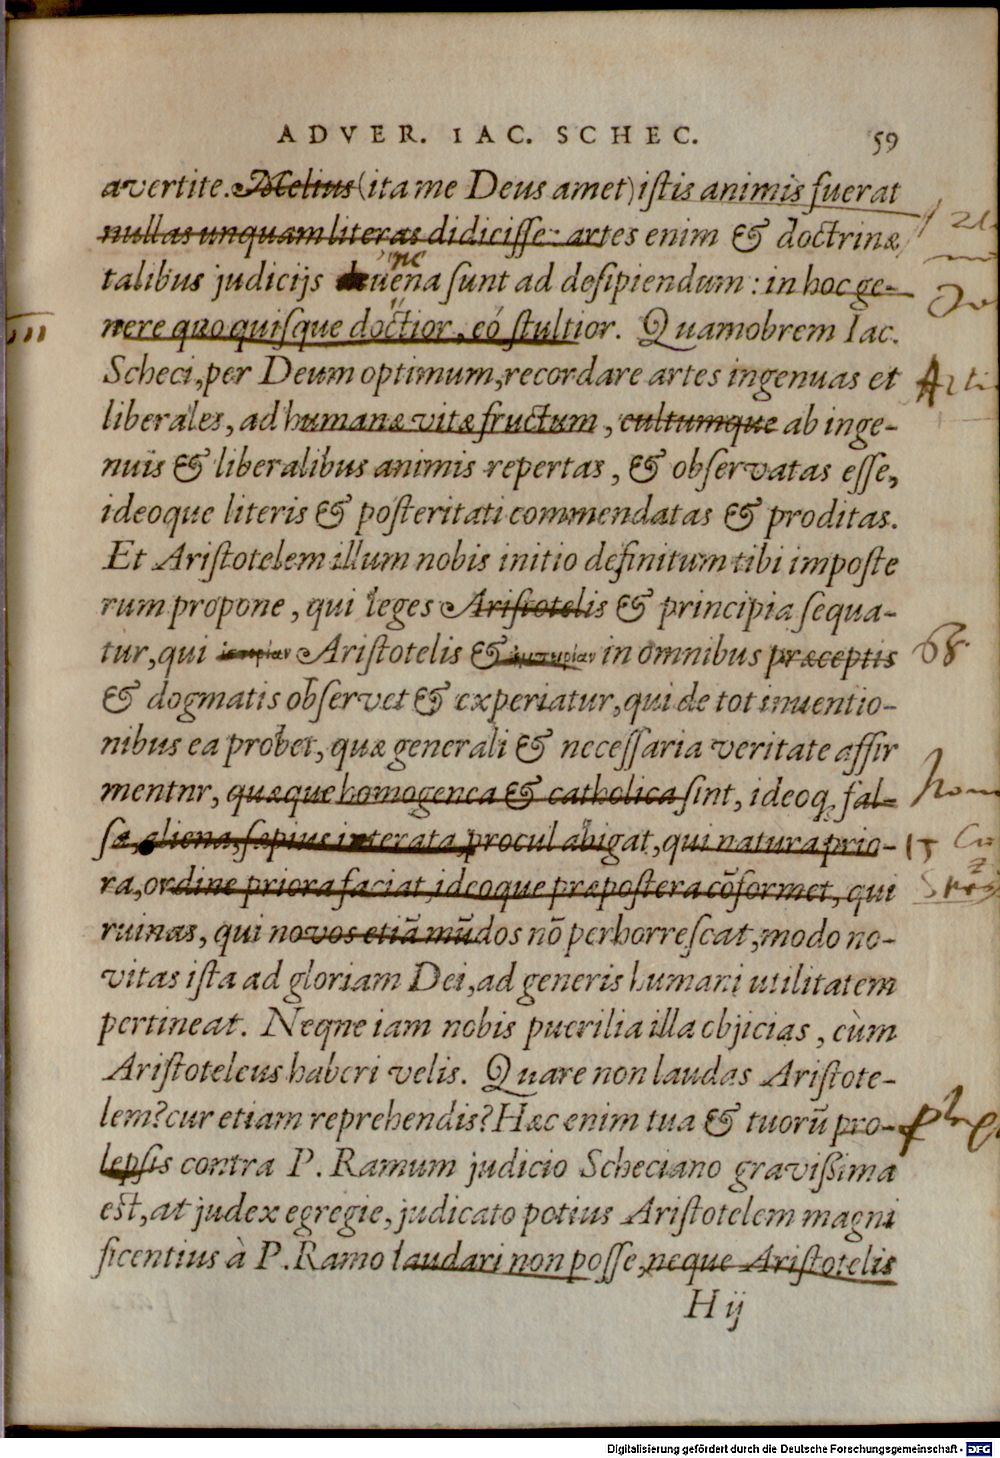 ADVER. IAC. SCHEC. 59
avertite. Melius (ita me Deus amet) iſtis animis fuerat
nullas unquam literas didiciſſe: artes enim & doctrinæ
talibus judicijs uena ſunt ad deſipiendum: in hoc ge-
nere quo quiſque doctior, eó ſtultior. Quamobrem Iac.
Scheci, per Deum optimum, recordare artes ingenuas et
liberales, ad humanæ vitæ fructum, cultumque ab inge-
nuis & liberalibus animis repertas, & obſervatas eſſe,
ideoque literis & poſteritati commendatas & proditas.
Et Ariſtotelem illum nobis initio definitum tibi impoſte
rum propone, qui leges Ariſtotelis & principia ſequa-
tur, qui ἱστορίαν Ariſtotelis & ἐμπειρίαν in omnibus præceptis
& dogmatis obſervet & experiatur, qui de tot inuentio-
nibus ea probet, quæ generali & neceſſaria veritate affir
mentnr, quæque homogenea & catholica ſint, ideoq, fal-
ſa, aliena, ſæpius iterata, procul abigat, qui natura prio-
ra, ordine priora faciat, ideoque præpoſtera cõformet, qui
ruinas, qui novos etiã mũdos nõ perhorreſcat, modo no-
vitas iſta ad gloriam Dei, ad generis humani utilitatem
pertineat. Neqne iam nobis puerilia illa objicias, cùm
Ariſtoteleus haberi velis. Quare non laudas Ariſtote-
lem? cur etiam reprehendis? Hæc enim tua & tuorũ pro-
lepſis contra P. Ramum judicio Scheciano graviſſima
eſt, at judex egregie, judicato potius Ariſtotelem magni
ficentius à P. Ramo laudari non poſſe, neque Ariſtotelis
H ij
68
hom
Digitalisierung gefördert durch die Deutsche Forschungsgemeinschaft - DFG